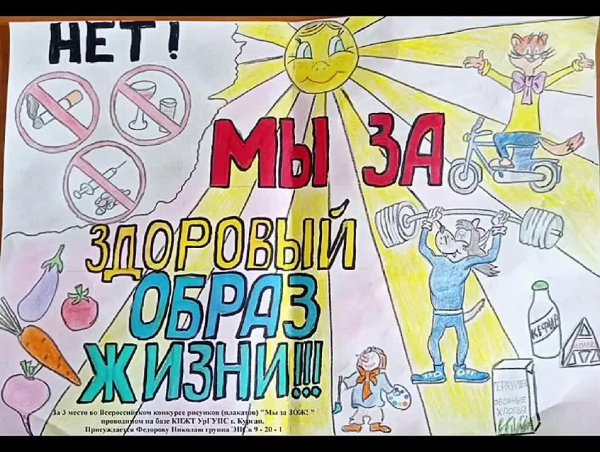 НЕТ!
МЫ ЗА
ЗДОРОВЫЙ
ОБРАЗ
ЖИЗНИ!!!!
КЕФИР
ГЕРКУЛЕС
ОВСЯНЫЕ
ХЛОПЬЯ
За 3 место во Всероссийском конкурсе рисунков (плакатов) "Мы за ЗОЖ! "
проводимом на базе КИЖТ УрГУПС г. Курган.
Присуждается Федорову Николаю группа ЭПС в 9 - 20 - 1